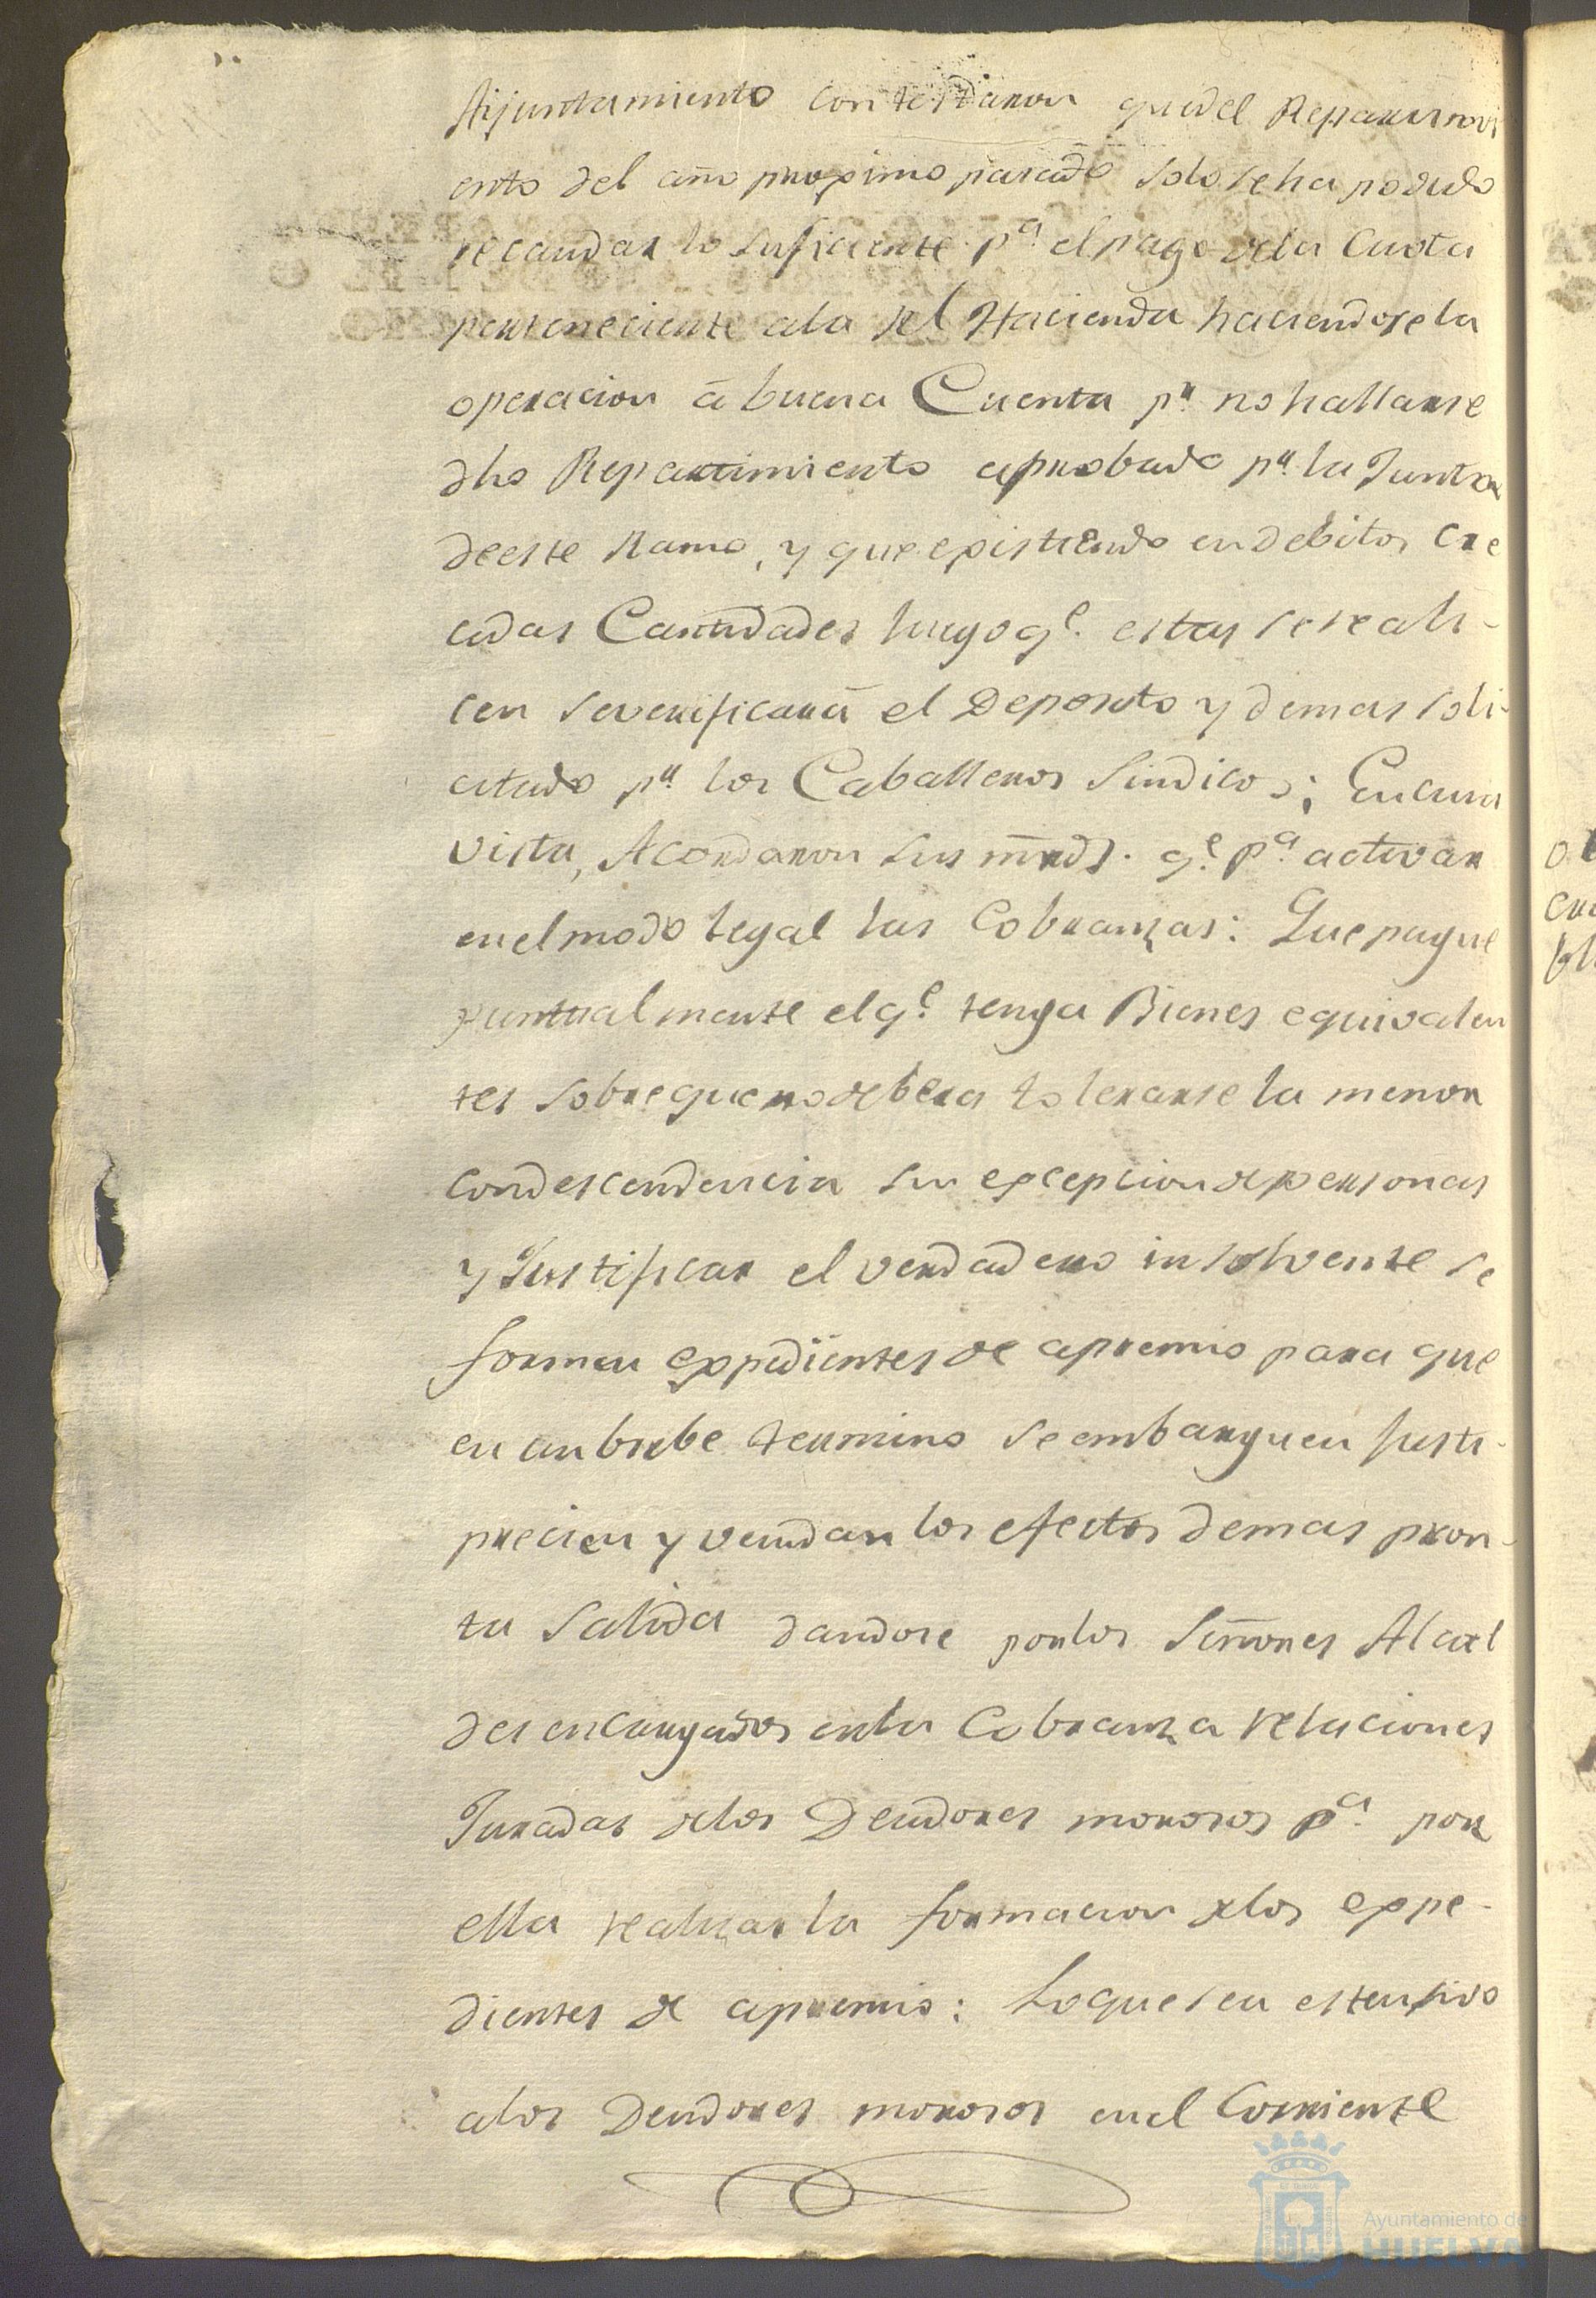 Aijuntamiento contestaron quedel Repartimi
ento del año proximo pasado solo se ha podido
recaudar lo suficiente pª. el pago dela Cuota
perteneciente ala Rl Hacienda haciendose la
operacion á buena Cuenta pr. no hallarse
dho Repartimiento aprobado pr. la Junta
de este Ramo, y que existiendo en debitos cre
cidas Cantidades luego qe. estas se reali-
cen se verificará el Deposito y demas soli-
citado pr. los Caballeros Sindicos; En cuia
vista, Acordaron sus mrds. qe. pª. activar
en el modo legal las Cobranzas: Que pague
puntualmente el qe. tenga Bienes equivalen
tes sobre que no debera tolerarse la menor
condescendencia sin excepcion de personas
y Justificar el verdadero insolvente se
formen expedientes de apremio para que
en un brebe termino se embarguen Justi-
precien y vendan los efectos demas pron-
ta salida dandose por los Señores Alcal
des encargados en la Cobranza relaciones
Juradas delos Deudores morosos pª. por
ella realizar la formacion delos expe-
dientes de apremio: Lo que sea estensivo
alos Deudores morosos en el Corriente
Ayuntamiento de
HUELVA